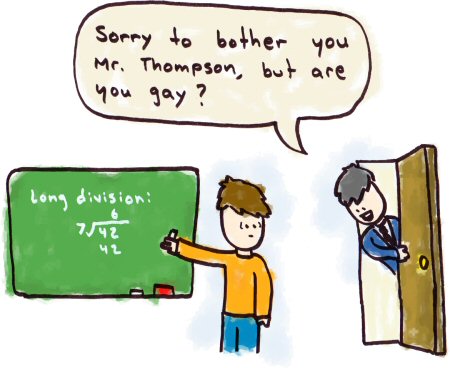 Sorry to bother you
Mr. Thompson, but are
you gay?
Long division:
6
7√42
42